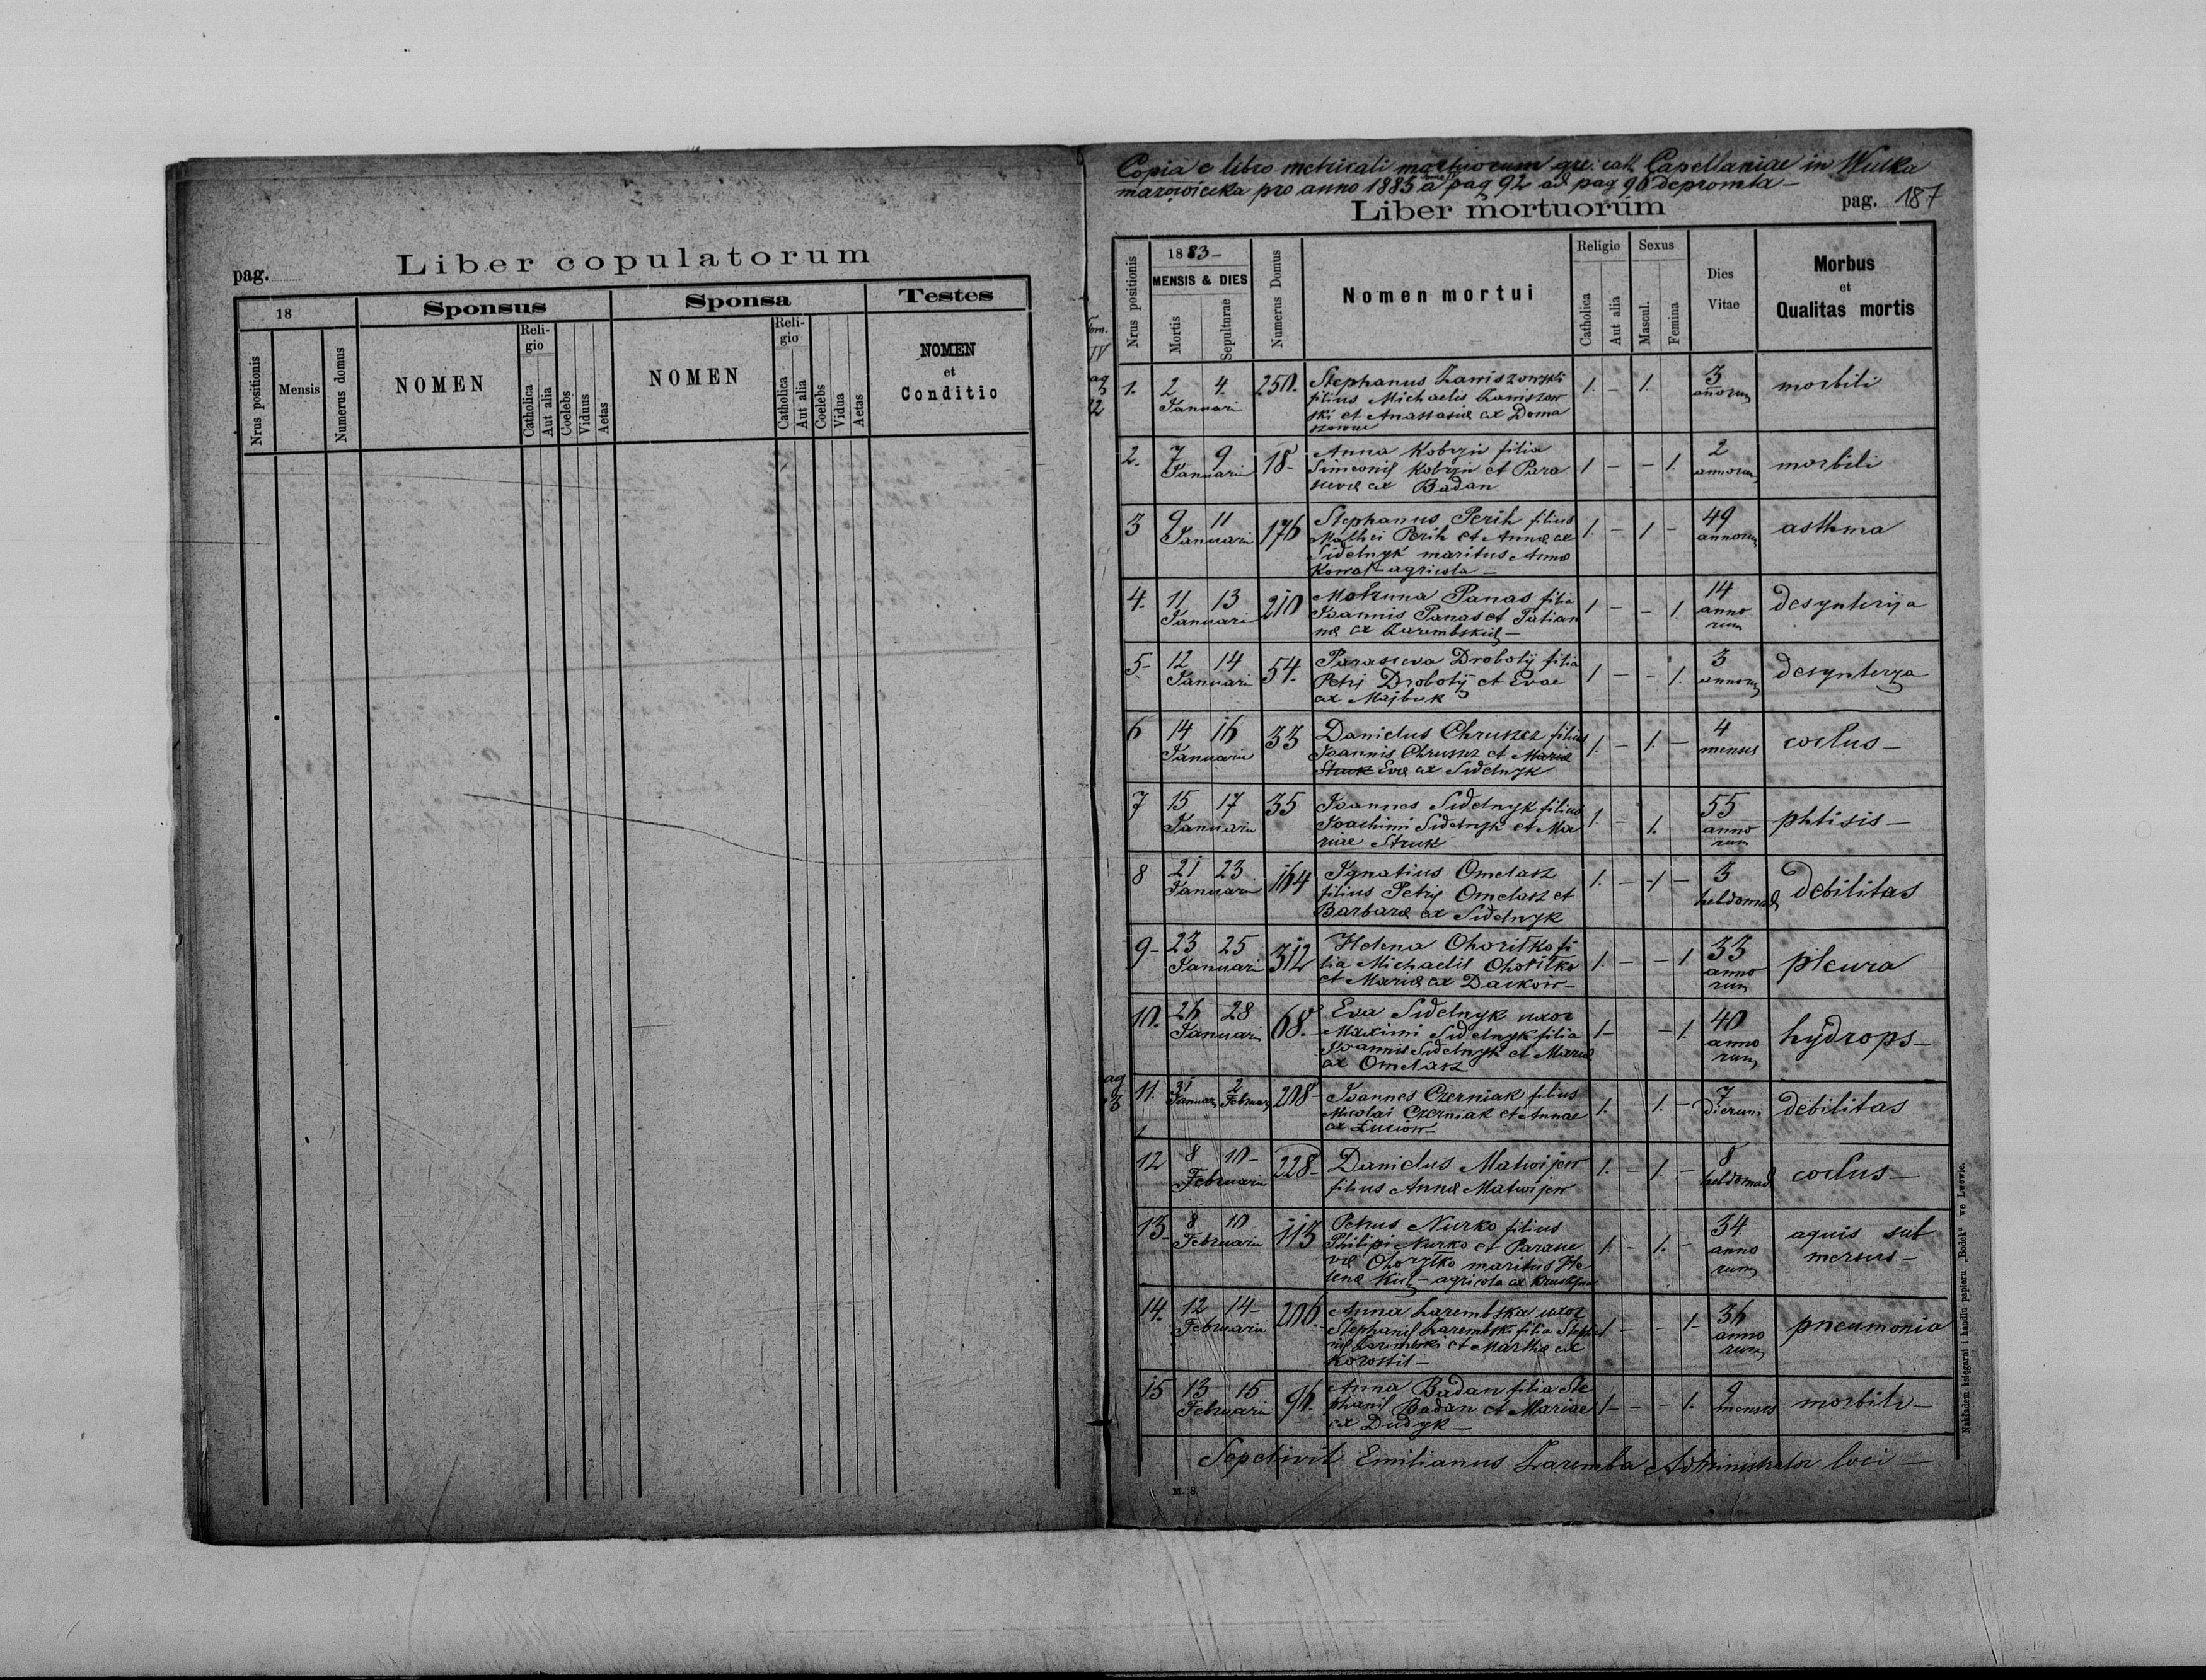 pag.
Liber copulatorum
18
Sponsus
Sponsa
Testes
Nrus positionis
Mensis
Numerus domus
NOMEN
Religio
Catholica
Aut alia
Coelebs
Viduus
Aetas
NOMEN
Religio
Catholica
Aut alia
Coelebs
Vidua
Aetas
NOMEN
et
Conditio
Copia e libro metricali mortuorum gre: cath Capellaniae in Wulka
mazowiecka pro anno 1883 a pag 92 ad pag 96 depromta —
Liber mortuorum
pag. 187
Nrus positionis
1883 —
MENSIS & DIES
Mortis
Sepulturae
Numerus Domus
Nomen mortui
Religio
Catholica
Aut alia
Sexus
Mascul.
Femina
Dies
Vitae
Morbus
et
Qualitas mortis
Tom.
IV
1. 2 4. 250. Stephanus Zawiszowski 1. — 1. 3 morbili
Januari filius Michaelis Zawiszow annorum
ski et Anastasiae ex Doma
2. 7 9 18 — Anna Kobryn filia 1 — — 1. 2 morbili
Januarii Simeonis Kobryn et Para annorum
scevae ex Badan
3 9 11 176 Stephanus Perih filius 1. — 1 — 49 asthma
Januari Mathei Perih et Annae ex annorum
Sidelnyk maritus Annae
Kowal — agricola —
4. 11 13 210 Motruna Panas filia 1 — — 1. 14 desynterija
Januari Joannis Panas et Tatian anno
nae ex Zarembskich — rum
5 — 12 14 54. Parasceva Drobotij filia 1 — — 1. 3 desynterya
Januari Petri Drobotij et Evae annorum
ex Majbuk
6 14 16 33 Danielus Chruszcz filius 1. — 1. — 4 coelus —
Januarii Joannis Chruszcz et Mariae menses
Struk Evae ex Sidelnyk
7 15 17 35 Joannes Sidelnyk filius 1. — 1. 55 phtisis —
Januarii Joachimi Sidelnyk et Ma anno
riae Struk rum
8 21 23 164 Ignatius Omelasz 1. — 1 — 3 debilitas
Januarii filius Petri Omelasz et hebdomad
Barbarae ex Sidelnyk
9 — 23 25 312 Helena Ohoriłko fi 1. — — 1 33 pleura
Januari lia Michaelis Ohoriłko anno
et Mariae ex Daćków — rum
10. 26 28 68. Eva Sidelnyk uxor 1 — — 1. 40 hydrops —
Januari Maximi Sidelnyk filia anno
Joannis Sidelnyk et Mariae rum
ex Omelasz
11. 31 2 208 — Joannes Czerniak filius 1. 1. — 7 debilitas
Januari Februari Nicolai Czerniak et Annae dierum
ex Łuciow —
12 8 10 — 228 — Danielus Matwijew 1. — 1. — 8 coelus —
Februarii filius Annae Matwijew hebdomad
13 — 8 10 113 Petrus Nurko filius 1. — 1. — 34 aquis sub
Februarii Philipi Nurko et Parasce anno mersus —
vae Ohoryłko maritus He rum
lenae Kich — agricola ex
14. 12 14 — 206. — Anna Zarembska uxor 1 — — 1 — 36 pneumonia
Februarii Stephani Zarembski filia Stepha anno
ni Zarembski et Martha ex rum
Korostil —
15 13 15 96. Anna Badan filia Ste 1 — — 1. 9 morbili —
Februarii phani Badan et Mariae menses
ex Dudyk —
Sepelivit Emilianus Zaremba Administrator loci —
M. 8
Nakładem księgarni i handlu papieru „Bodek" we Lwowie.